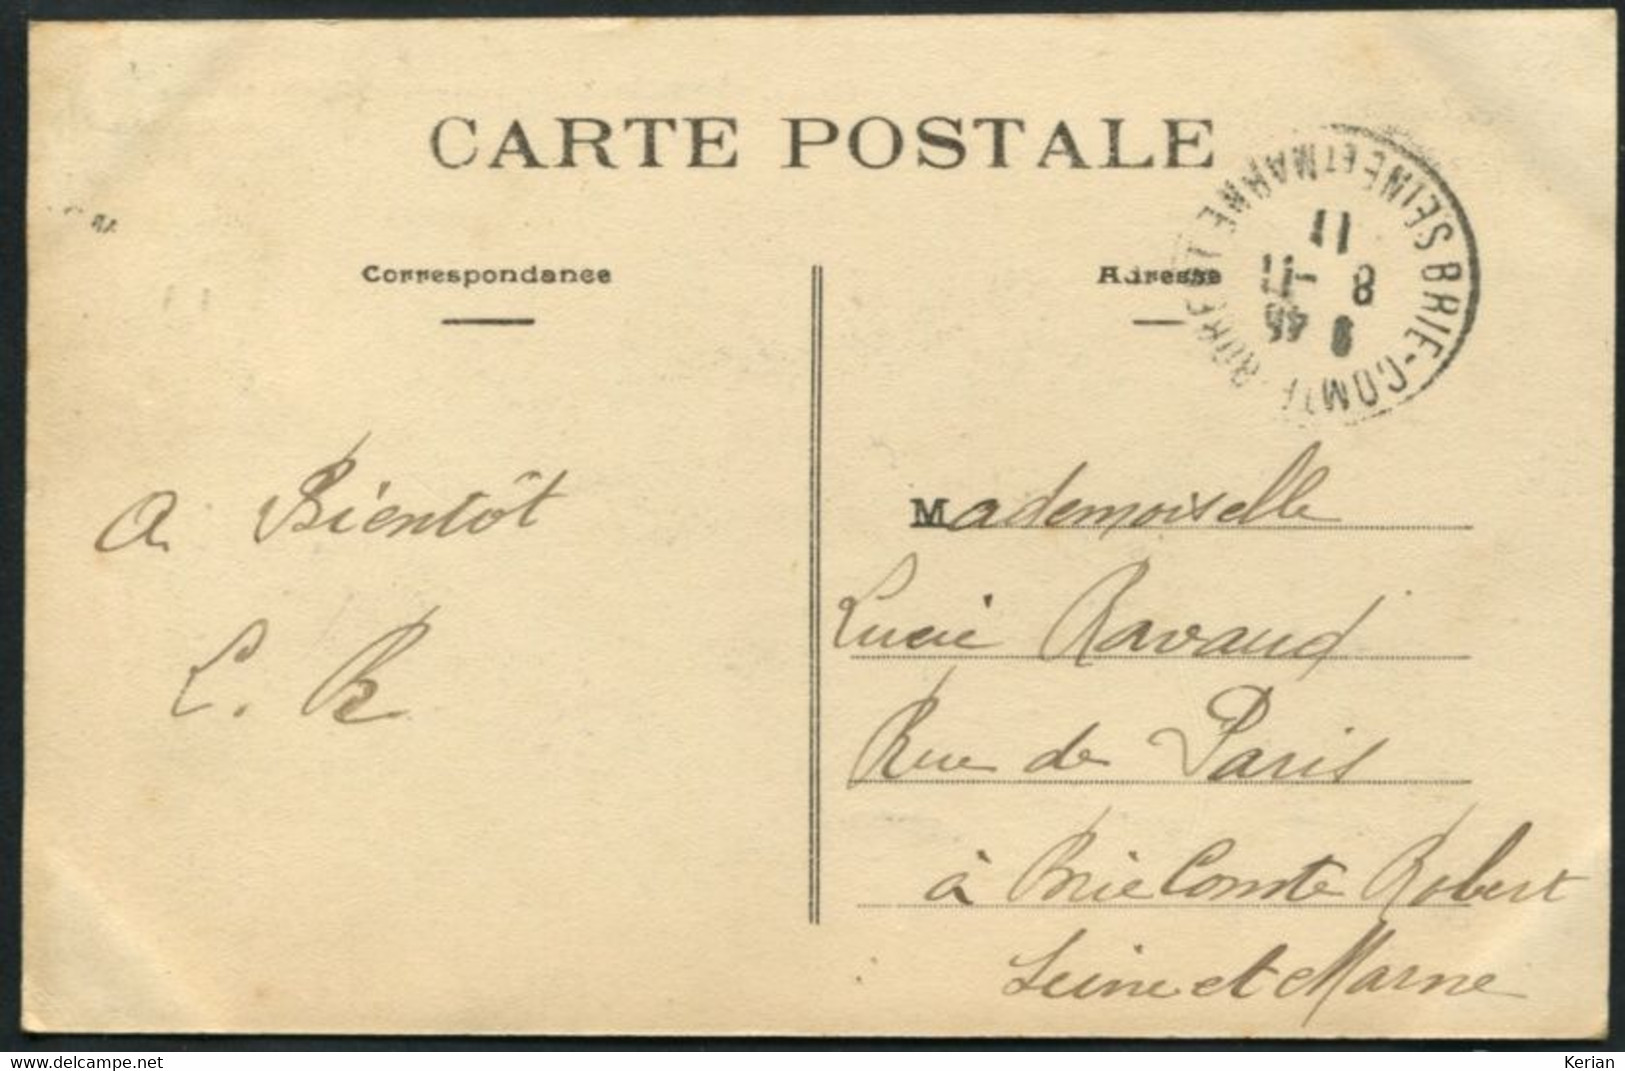 CARTE POSTALE
Correspondance
Adresse
BRIE-COMTE-ROBERT
SEINE ET MARNE
9 45
8 - 11
11
A Bientôt
L. R
Mademoiselle
Lucie Ravaud
Rue de Paris
à Brie Comte Robert
Seine et Marne
www.delcampe.net
Kerian